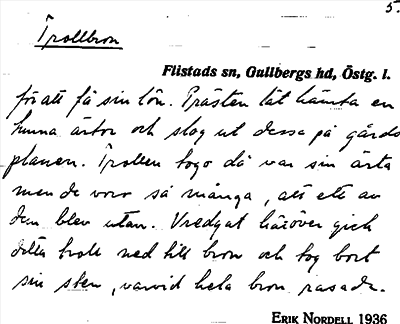 5.
Trollbron
Flistads sn, Gullbergs hd, Östg. l.
för att få sin lön. Prästen lät hämta en
kunna ärtor och slog ut dessa på gårds
planen. Trollen togo då var sin ärta
men de voro så många, att ett av
dem blev utan. Vredgat häröver gick
detta troll ned till bron och tog bort
sin sten, varvid hela bron rasade.
ERIK NORDELL 1936